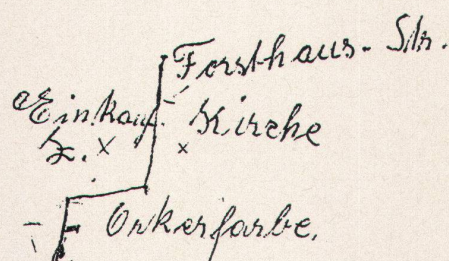 Forsthaus-Str.
Einkauf
Kirche
Z. x
x
Onkerfarbe.